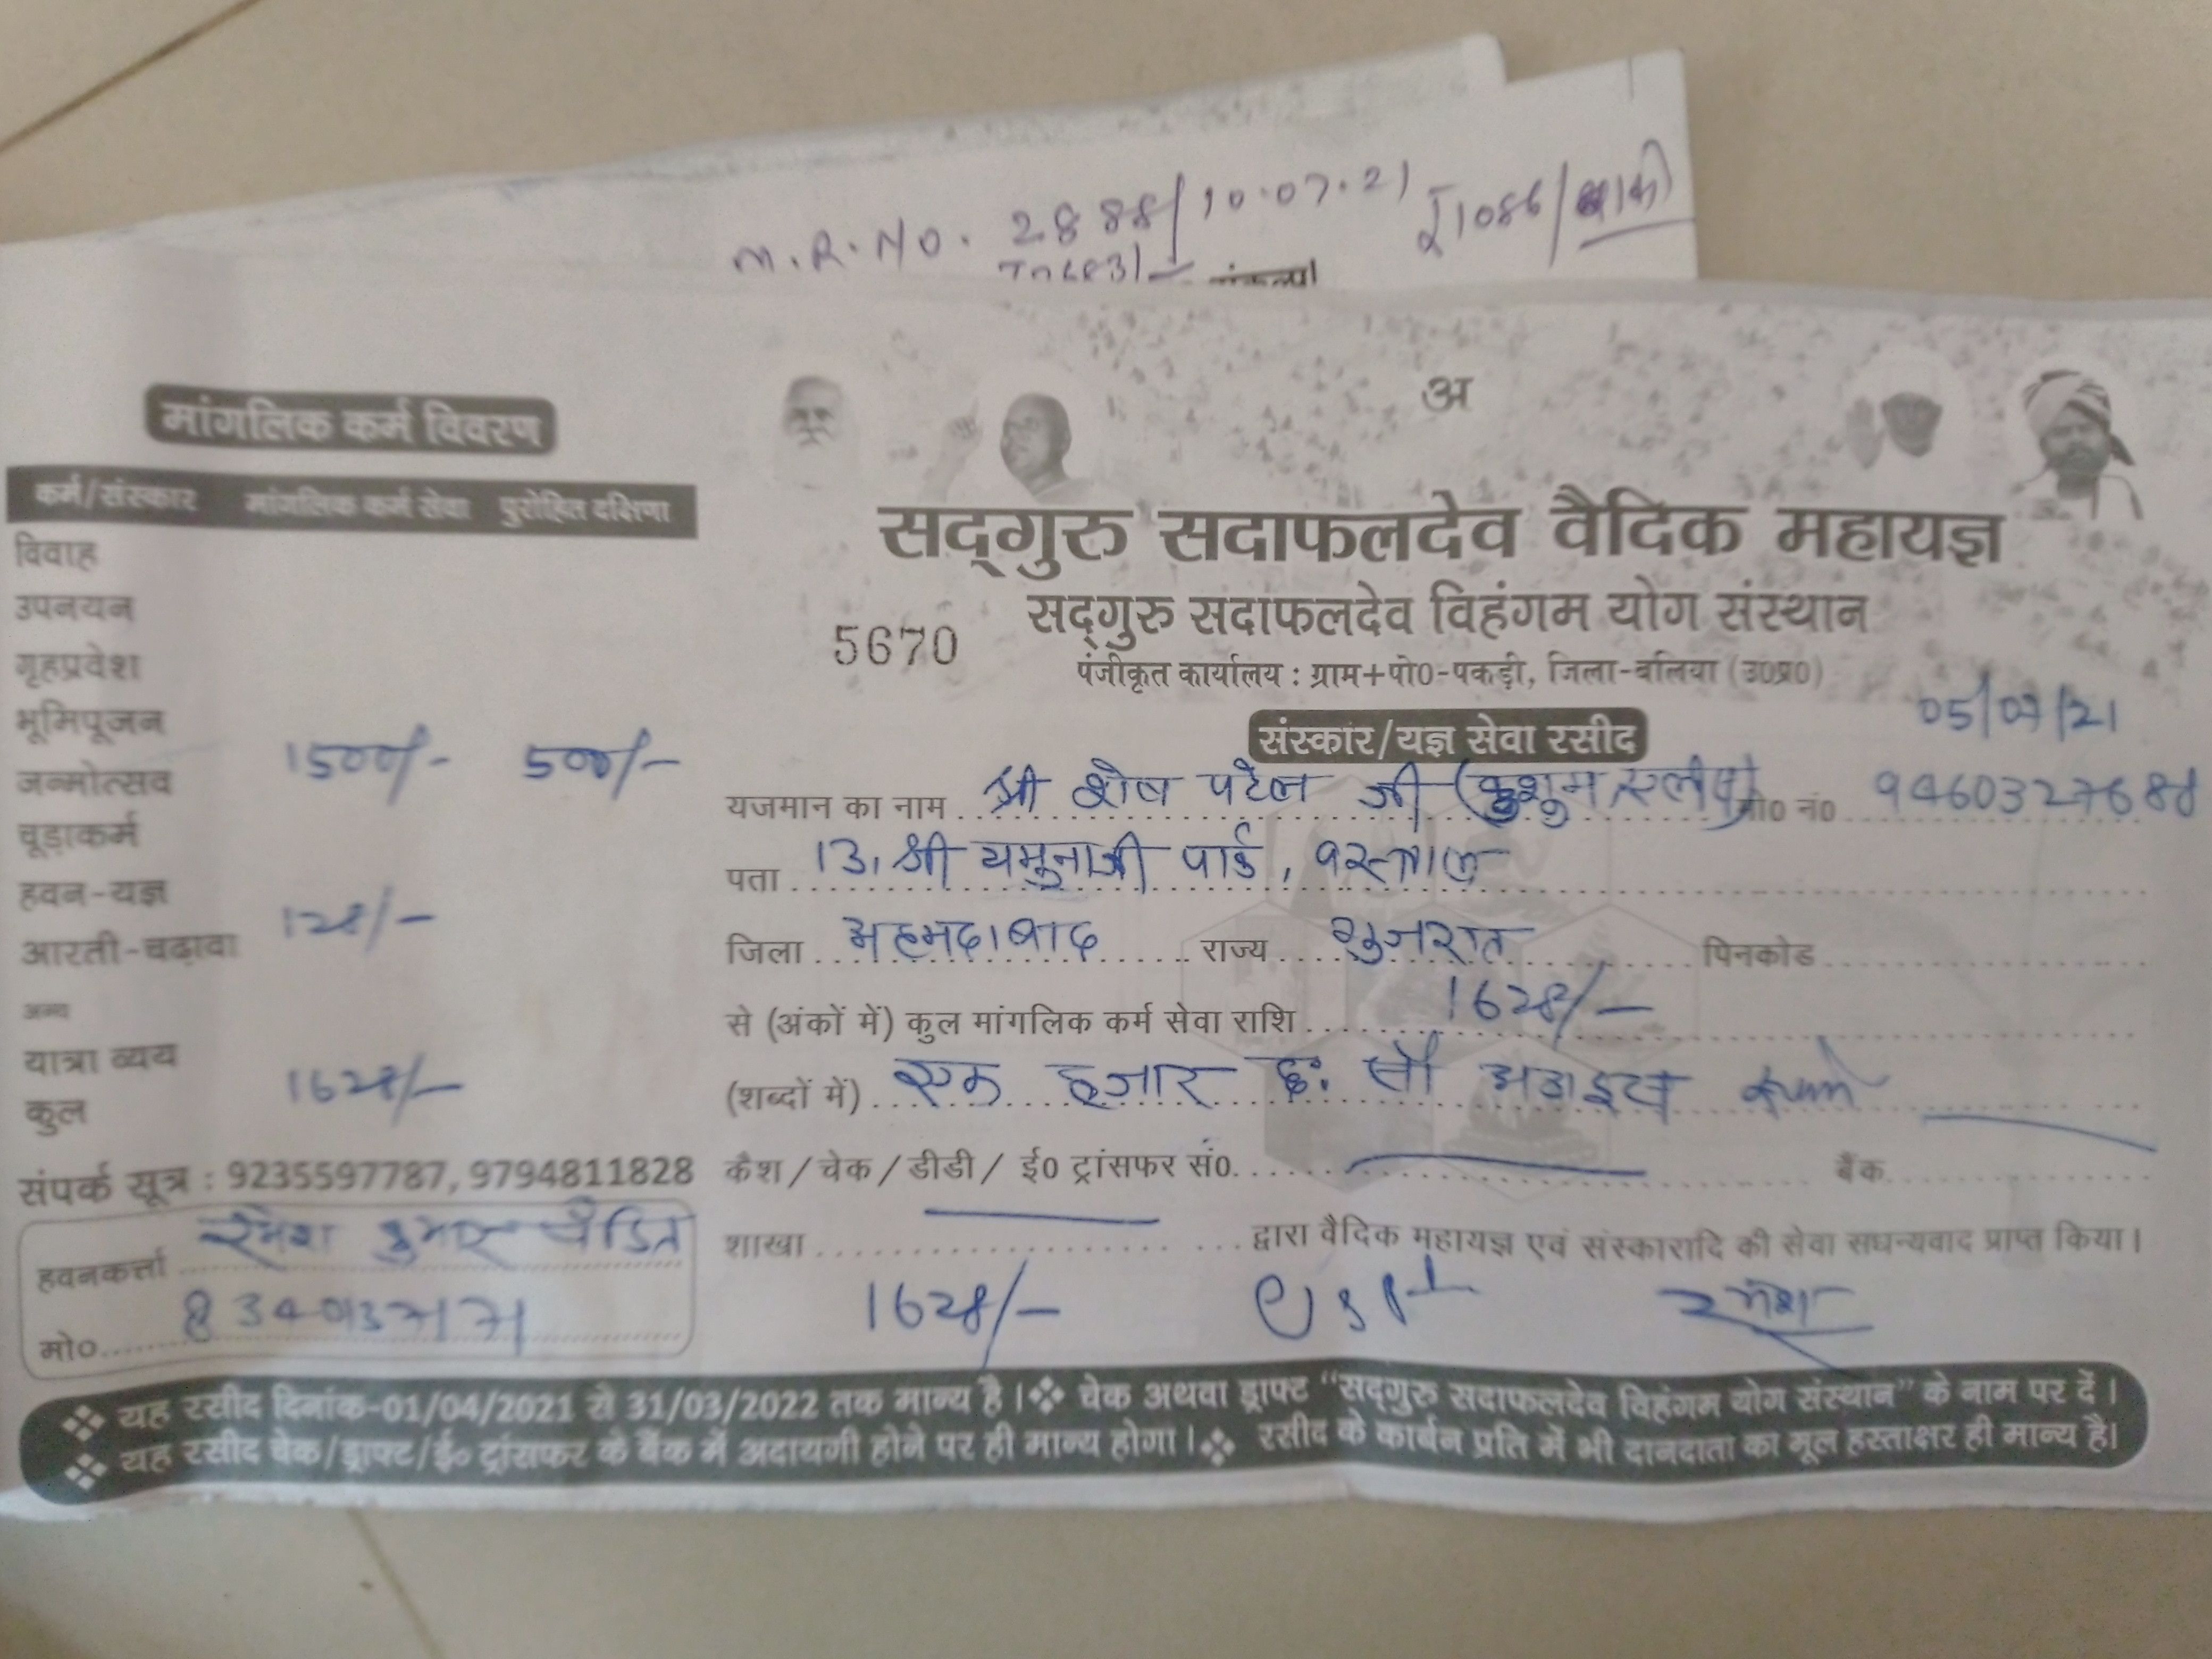 M.R.NO. 2888/10.07.21 ₹1086/बाकी
अ
मांगलिक कर्म विवरण
कर्म/संस्कार मांगलिक कर्म सेवा पुरोहित दक्षिणा
विवाह
उपनयन
गृहप्रवेश
भूमिपूजन
1500/- 500/-
जन्मोत्सव
चूड़ाकर्म
हवन-यज्ञ
128/-
आरती-चढ़ावा
अन्य
यात्रा व्यय
1628/-
कुल
संपर्क सूत्र : 9235597787, 9794811828
हवनकर्त्ता रमेश कुमार पंडित
मो०
सद्गुरु सदाफलदेव वैदिक महायज्ञ
सद्गुरु सदाफलदेव विहंगम योग संस्थान
5670
पंजीकृत कार्यालय : ग्राम+पो0-पकड़ी, जिला-बलिया (उ0प्र0)
05/07/21
संस्कार/यज्ञ सेवा रसीद
यजमान का नाम श्री शेष पटेल जी मो0 नं0
पता 13, श्री यमुनाजी पार्क, वस्त्राल
जिला अहमदाबाद राज्य गुजरात पिनकोड
से (अंकों में) कुल मांगलिक कर्म सेवा राशि 1628/-
(शब्दों में) एक हजार छः सौ अठाइस
कैश / चेक / डीडी / ई0 ट्रांसफर सं0. बैंक
शाखा द्वारा वैदिक महायज्ञ एवं संस्कारादि की सेवा सधन्यवाद प्राप्त किया।
1628/- रमेश
❖ यह रसीद दिनांक-01/04/2021 से 31/03/2022 तक मान्य है। ❖ चेक अथवा ड्राफ्ट "सद्गुरु सदाफलदेव विहंगम योग संस्थान" के नाम पर दें।
❖ यह रसीद चेक/ड्राफ्ट/ई० ट्रांसफर के बैंक में अदायगी होने पर ही मान्य होगा। ❖ रसीद के कार्बन प्रति में भी दानदाता का मूल हस्ताक्षर ही मान्य है।